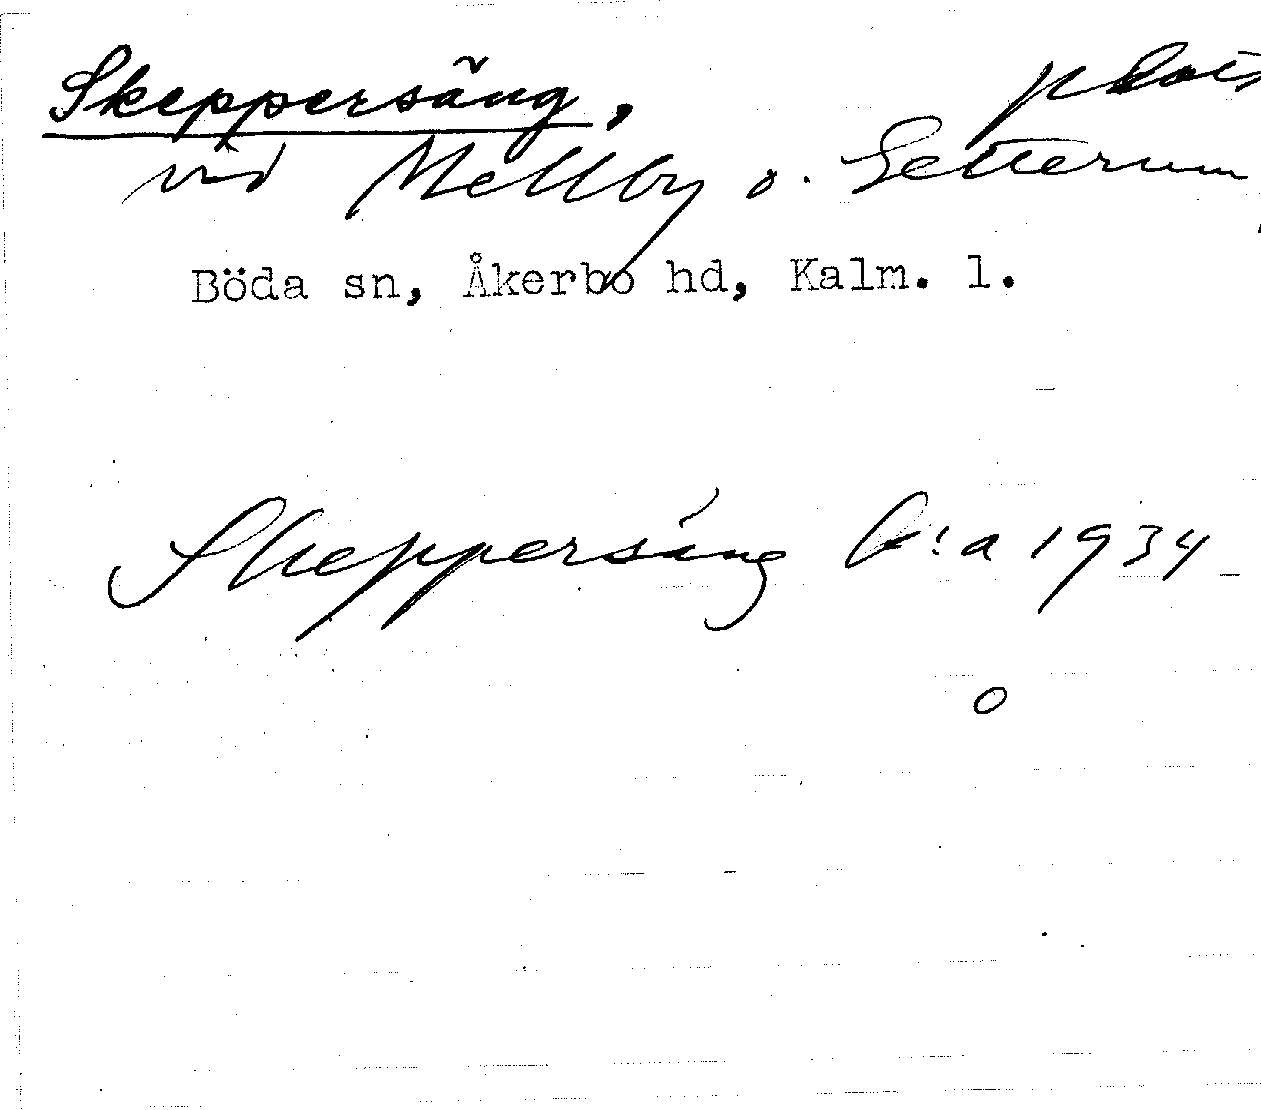 Skeppersäng, plats
vid Mellby o. Setterum
Böda sn, Åkerbo hd, Kalm. l.
Skeppersäng b:a 1934